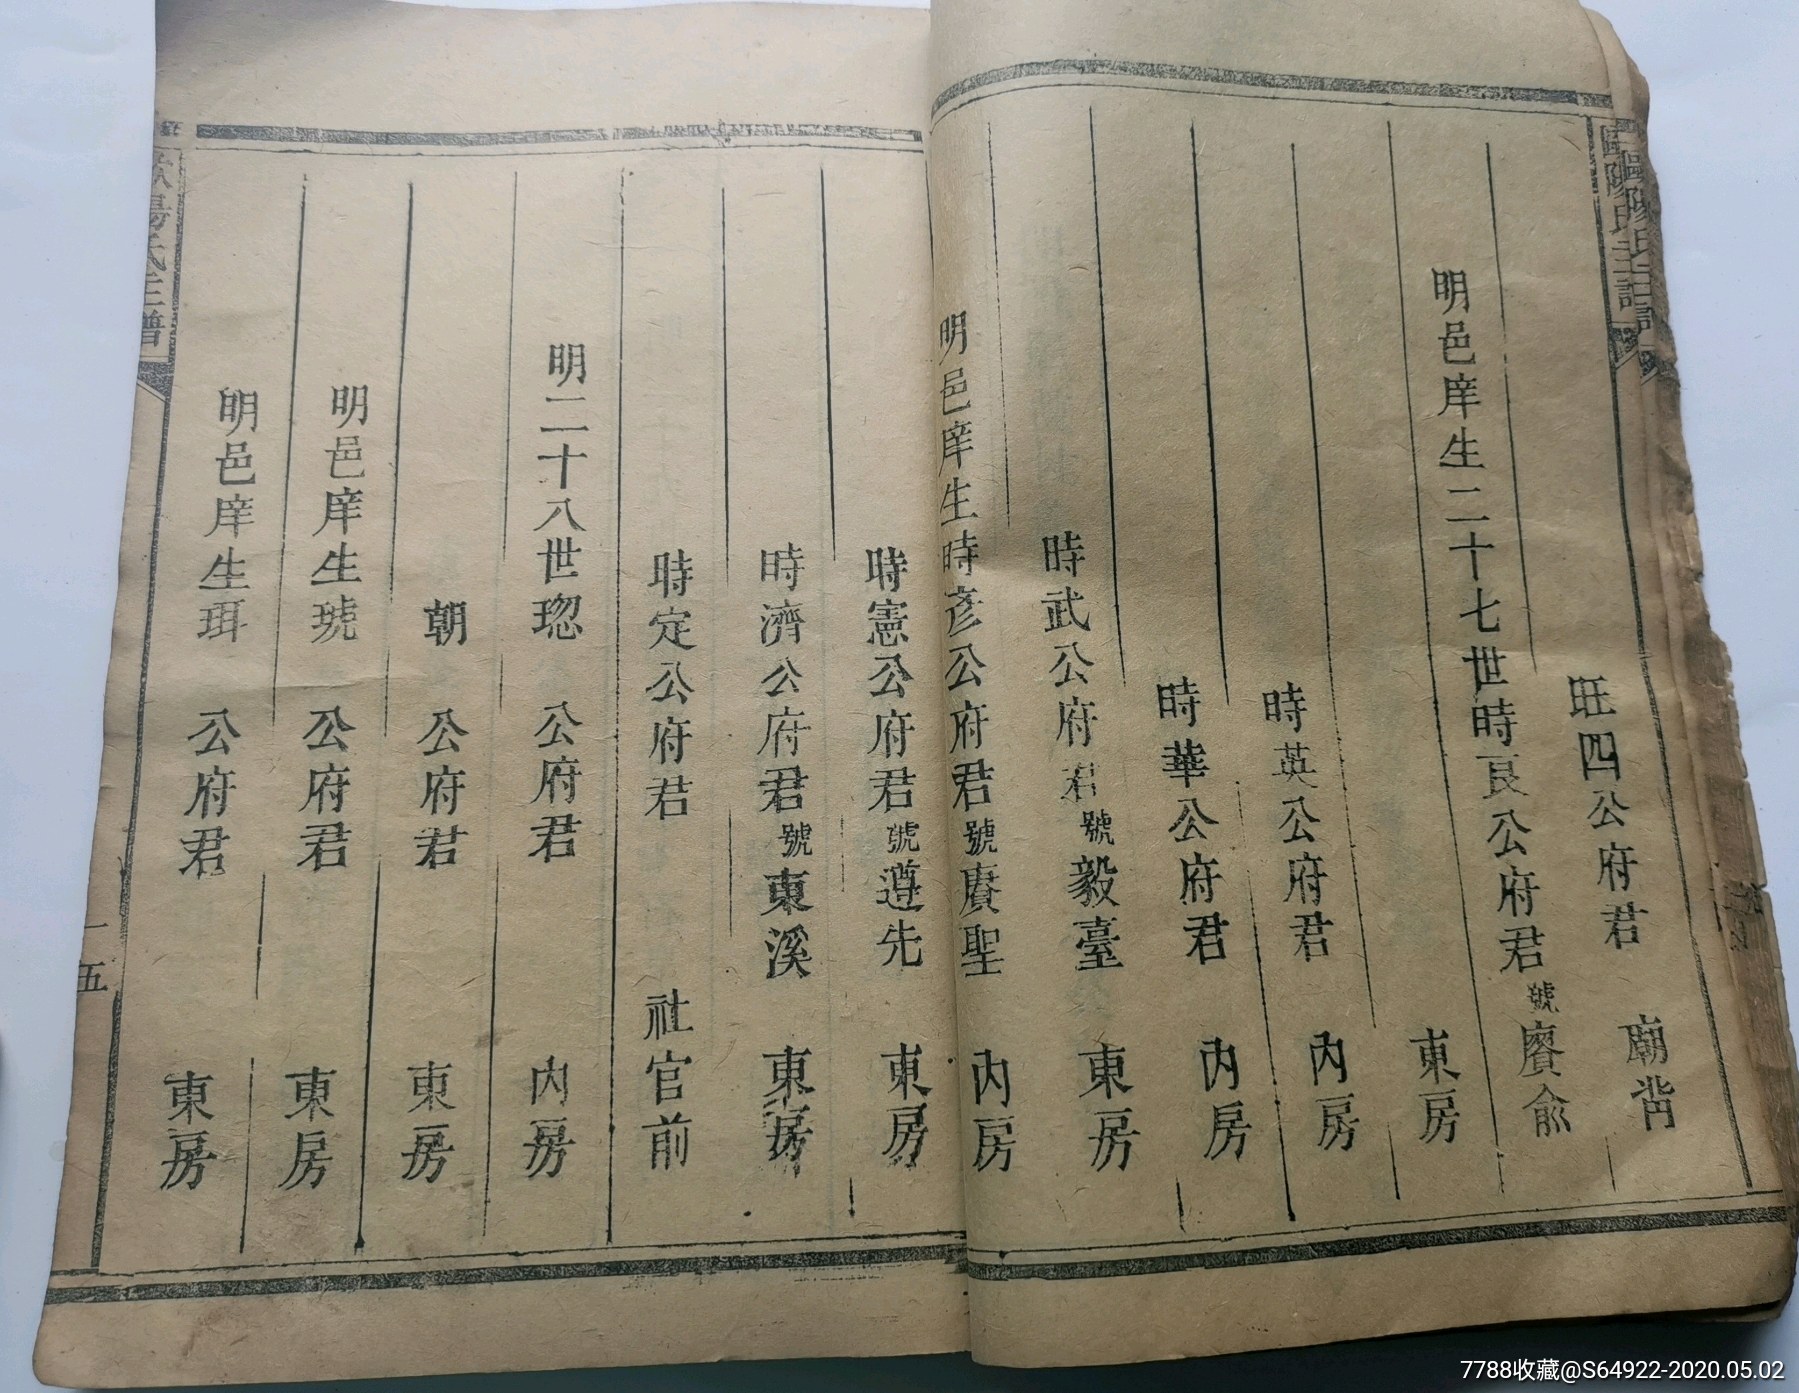 歐陽氏主譜
旺四公府君 廟背
明邑庠生二十七世時良公府君號賡俞
東房
時英公府君 內房
時華公府君 內房
時武公府君號毅臺 東房
明邑庠生時彥公府君號賡聖 內房
時憲公府君號遵先 東房
時濟公府君號東溪 東房
時定公府君 社官前
明二十八世璁 公府君 內房
朝 公府君 東房
明邑庠生琥 公府君 東房
明邑庠生珥 公府君 東房
一五
7788收藏@S64922-2020.05.02